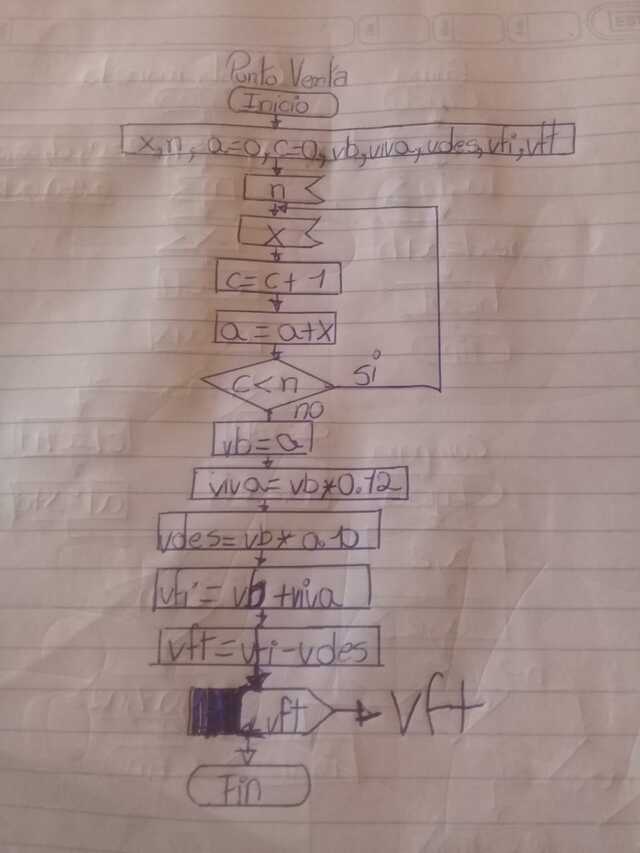 Punto Venta
Inicio
x, n, a=0, c=0, vb, viva, vdes, vfi, vft
n
x
c=c+1
a=a+x
c<n
si
no
vb=a
viva=vb*0.12
vdes=vb*0.10
vfi=vb+viva
vft=vfi-vdes
vft
vft
Fin